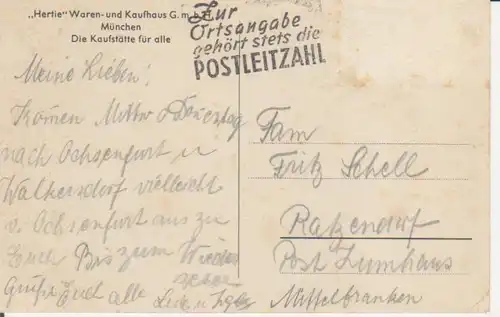 „Hertie" Waren- und Kaufhaus G.m.b.H.
München
Die Kaufstätte für alle
Zur
Ortsangabe
gehört stets die
POSTLEITZAHL
Meine Lieben!
Komen Mittw o Donerstag
nach Ochsenfurt u
Walkersdorf vielleicht
v. Ochsenfurt aus zu
Euch Bis zum Wieder
sehen
Grüßt Euch alle
Fam
Fritz Schell
Ratzendorf
Post Lumhaus
Mittelfranken